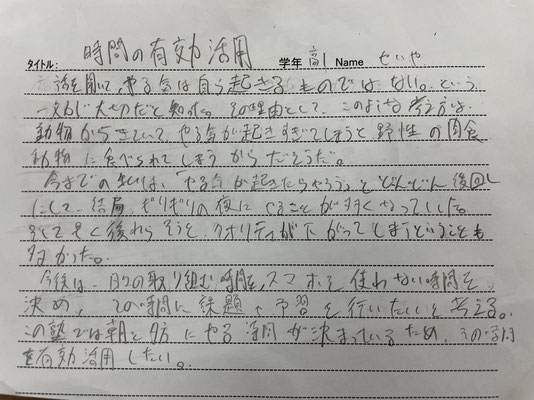 タイトル: 時間の有効活用 学年 高1 Name せいや
話を聞いて、やる気は自ら起きるものではない。という
一文が大切だと知った。その理由として、このような考え方は、
動物から きていて、やる気が起きすぎてしまうと野性の肉食
動物に食べられてしまうからだそうだ。
今までの生活は、「やる気が起きたらやろう」とどんどん後回し
にして、結局、ギリギリの夜にやることが多くなっていた。
そして早く終わらそうと、クオリティが下がってしまうということも
多かった。
今後は、日々の取り組む時間を、スマホを使わない時間を
決め、その時間に課題、予習を行いたいと考える。
この塾では朝と夕方にやる時間が決まっているため、その時間
を有効活用したい。